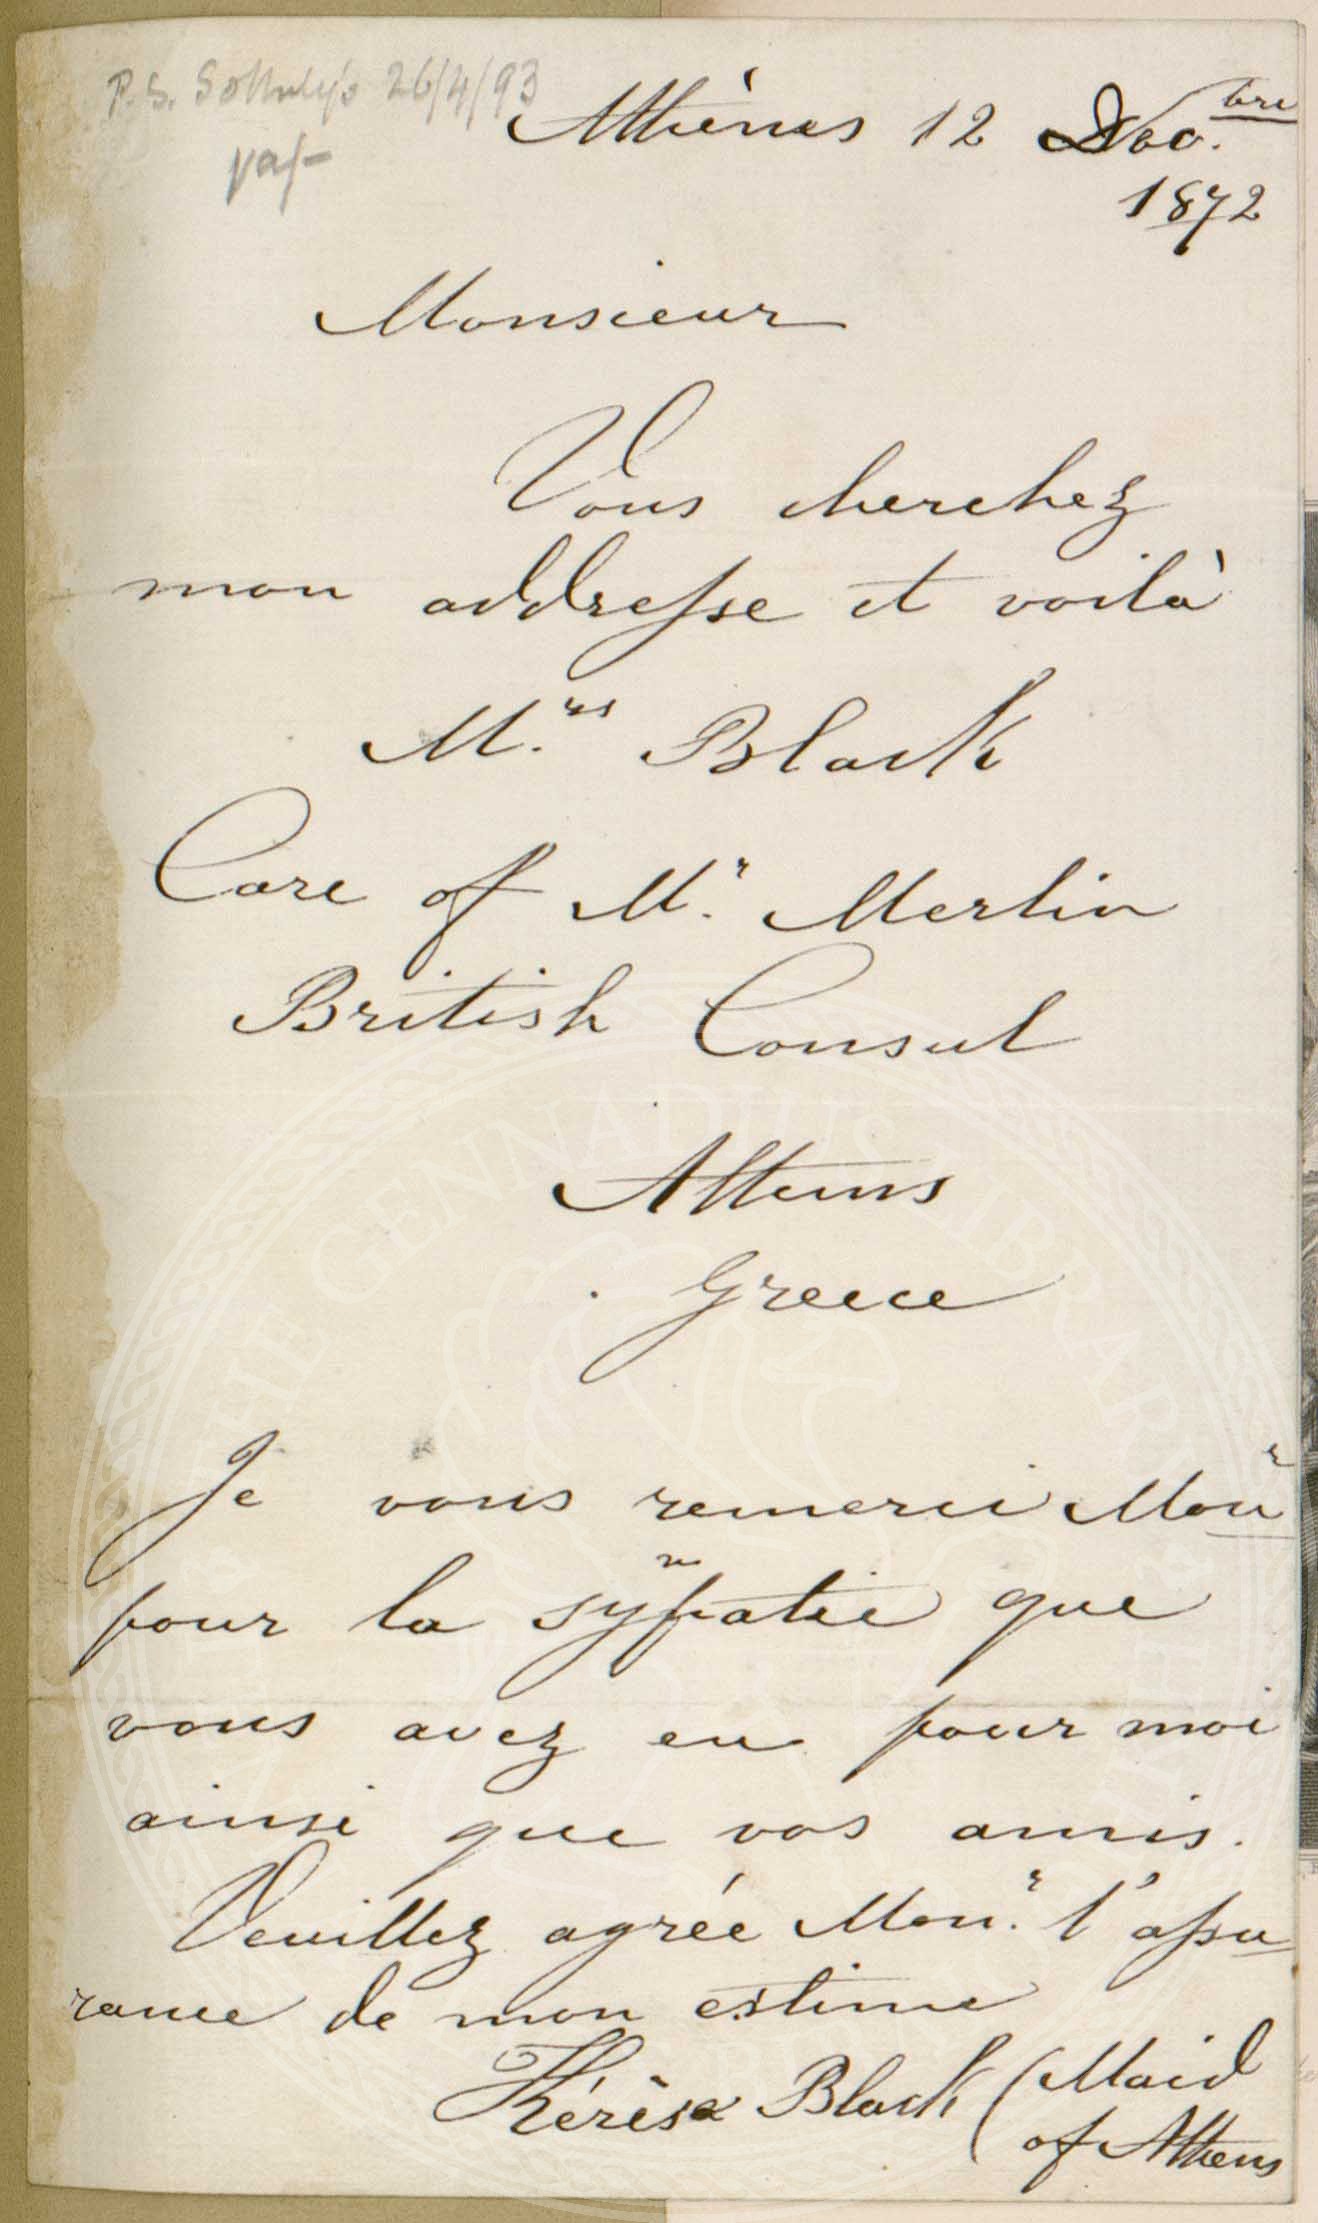 P.S. Sotheby's 26/4/93
Athènes 12 Dec.bre
1872
Monsieur
Vous cherchez
mon addresse et voilà
M.rs Black
Care of M.r Merlin
British Consul
Athens
Greece
Je vous remerci Monr
pour la sympatie que
vous avez eu pour moi
ainsi que vos amis.
Veuillez agrée Mon.r l'assu
rance de mon estime
Thérèsa Black (Maid
of Athens
THE GENNADIUS LIBRARY